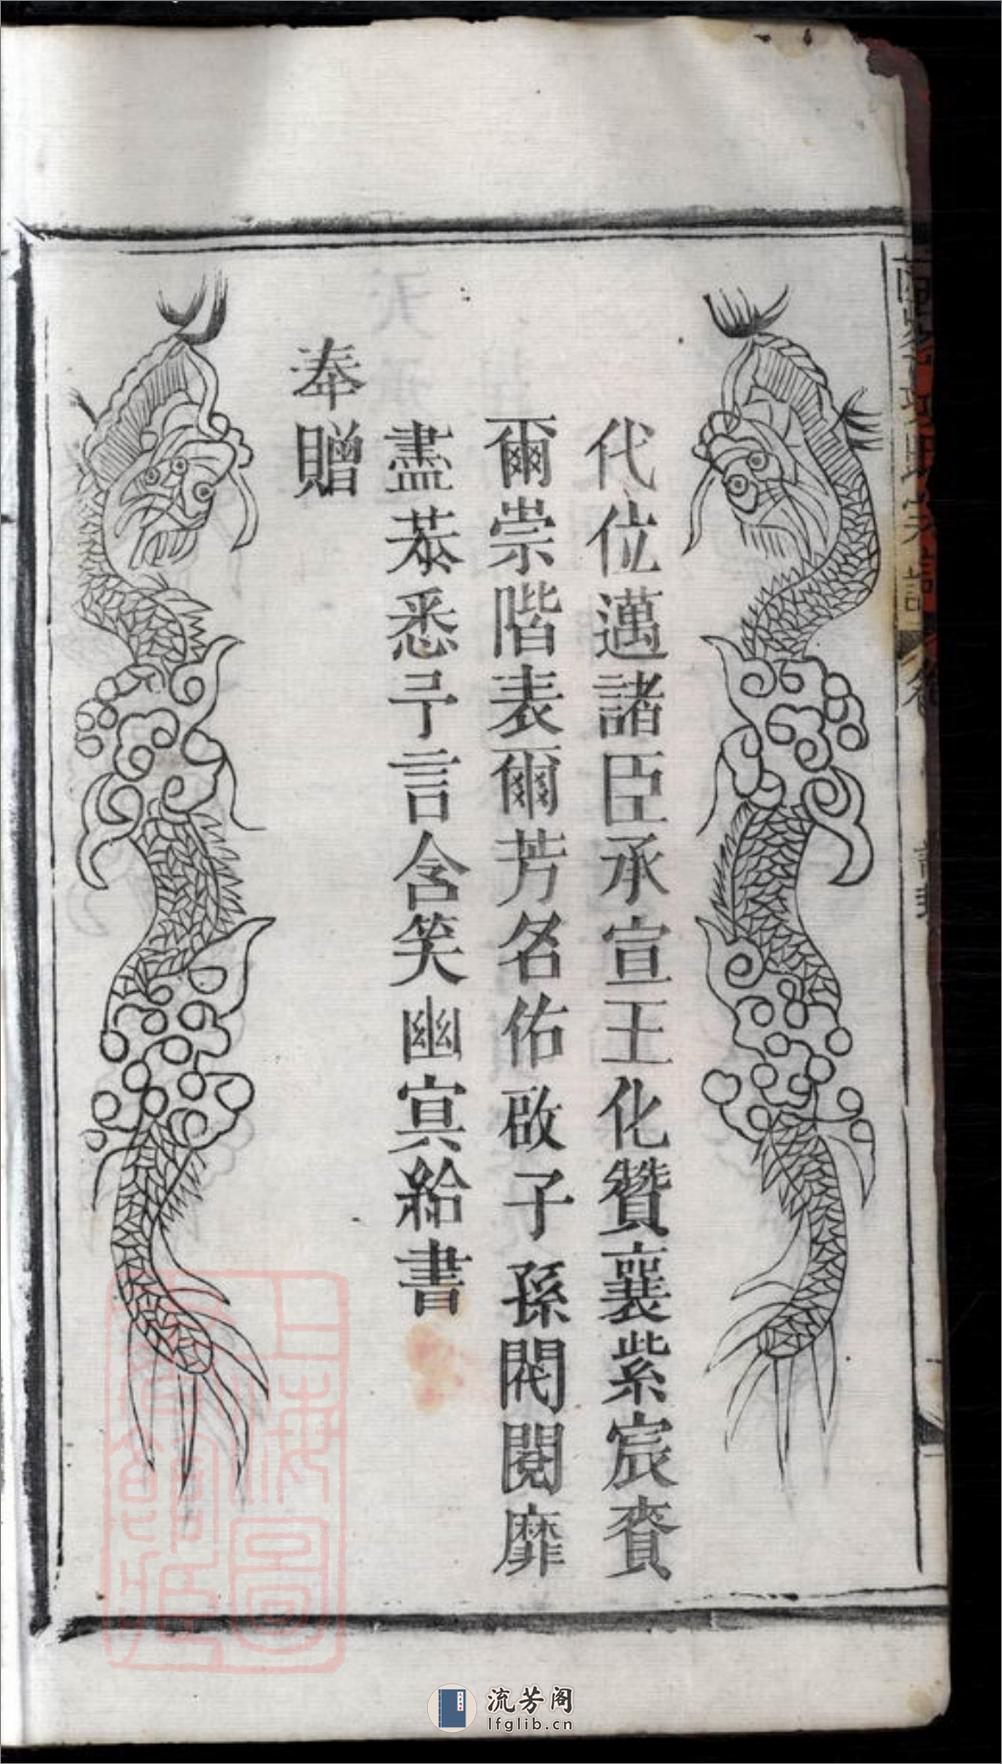 代位邁諸臣承宣王化贊襄紫宸賚
爾崇階表爾芳名佑啟子孫閥閱靡
盡恭悉予言含笑幽冥給書
奉贈
上海圖書館藏
流芳阁
lfglib.cn